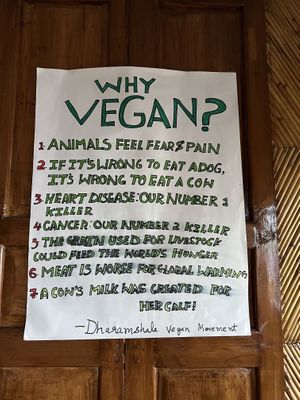 WHY
VEGAN?
1 ANIMALS FEEL FEAR & PAIN
2 IF IT'S WRONG TO EAT A DOG,
IT'S WRONG TO EAT A COW
3 HEART DISEASE: OUR NUMBER 1
KILLER
4 CANCER: OUR NUMBER 2 KILLER
5 THE GRAIN USED FOR LIVESTOCK
COULD FEED THE WORLD'S HUNGER
6 MEAT IS WORSE FOR GLOBAL WARMING
7 A COW'S MILK WAS CREATED FOR
HER CALF!
- Dharamshala Vegan Movement